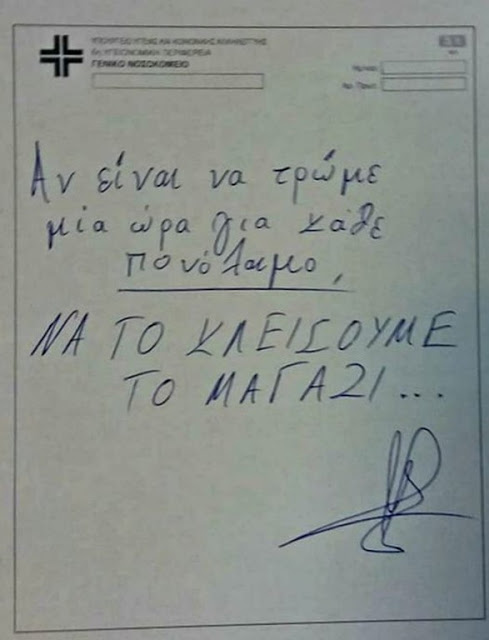 ΥΠΟΥΡΓΕΙΟ ΥΓΕΙΑΣ ΚΑΙ ΚΟΙΝΩΝΙΚΗΣ ΑΛΛΗΛΕΓΓΥΗΣ
6η ΥΓΕΙΟΝΟΜΙΚΗ ΠΕΡΙΦΕΡΕΙΑ
ΓΕΝΙΚΟ ΝΟΣΟΚΟΜΕΙΟ
Αρ. Πρωτ.
Αν είναι να τρώμε
μία ώρα για κάθε
πονόλαιμο,
ΝΑ ΤΟ ΚΛΕΙΣΟΥΜΕ
ΤΟ ΜΑΓΑΖΙ...